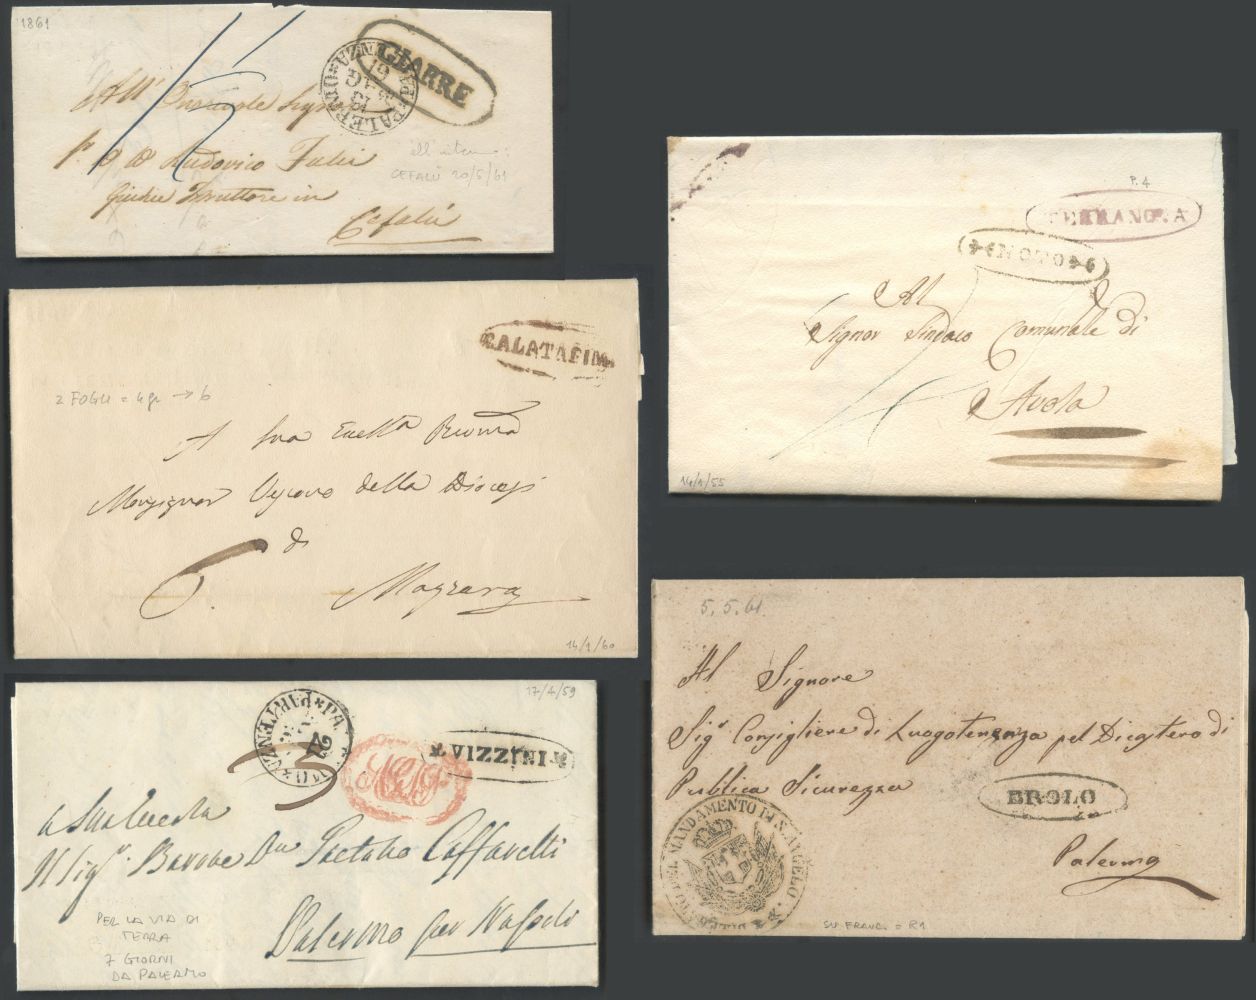 1861
GIARRE
PALERMO
PARTENZA
19
MAG
61
All'
Signor
Ludovico
Giudice Istruttore in
Cefalù
CEFALÙ 20/5/61
P. 4
TERRANOVA
NOTO
Al
Signor Sindaco Comunale di
Avola
14/1/55
CALATAFIMI
2 FOGLI = 4 gr → 6
A Sua
Monsignor Vescovo della Diocesi
di
Mazzara
6
14/1/60
17/4/59
VIZZINI
PARTENZA
3
A Sua Eccellenza
Il Sigr. Barone Dn Gaetano Caffarelli
Palermo per Napoli
PER LA VIA DI
TERRA
7 GIORNI
DA PALERMO
5.5.61
Al Signore
Sigr Consigliere di Luogotenenza pel Dicastero di
Pubblica Sicurezza
BROLO
in
Palermo
MANDAMENTO DI S. ANGELO
SU FRANC. = R1